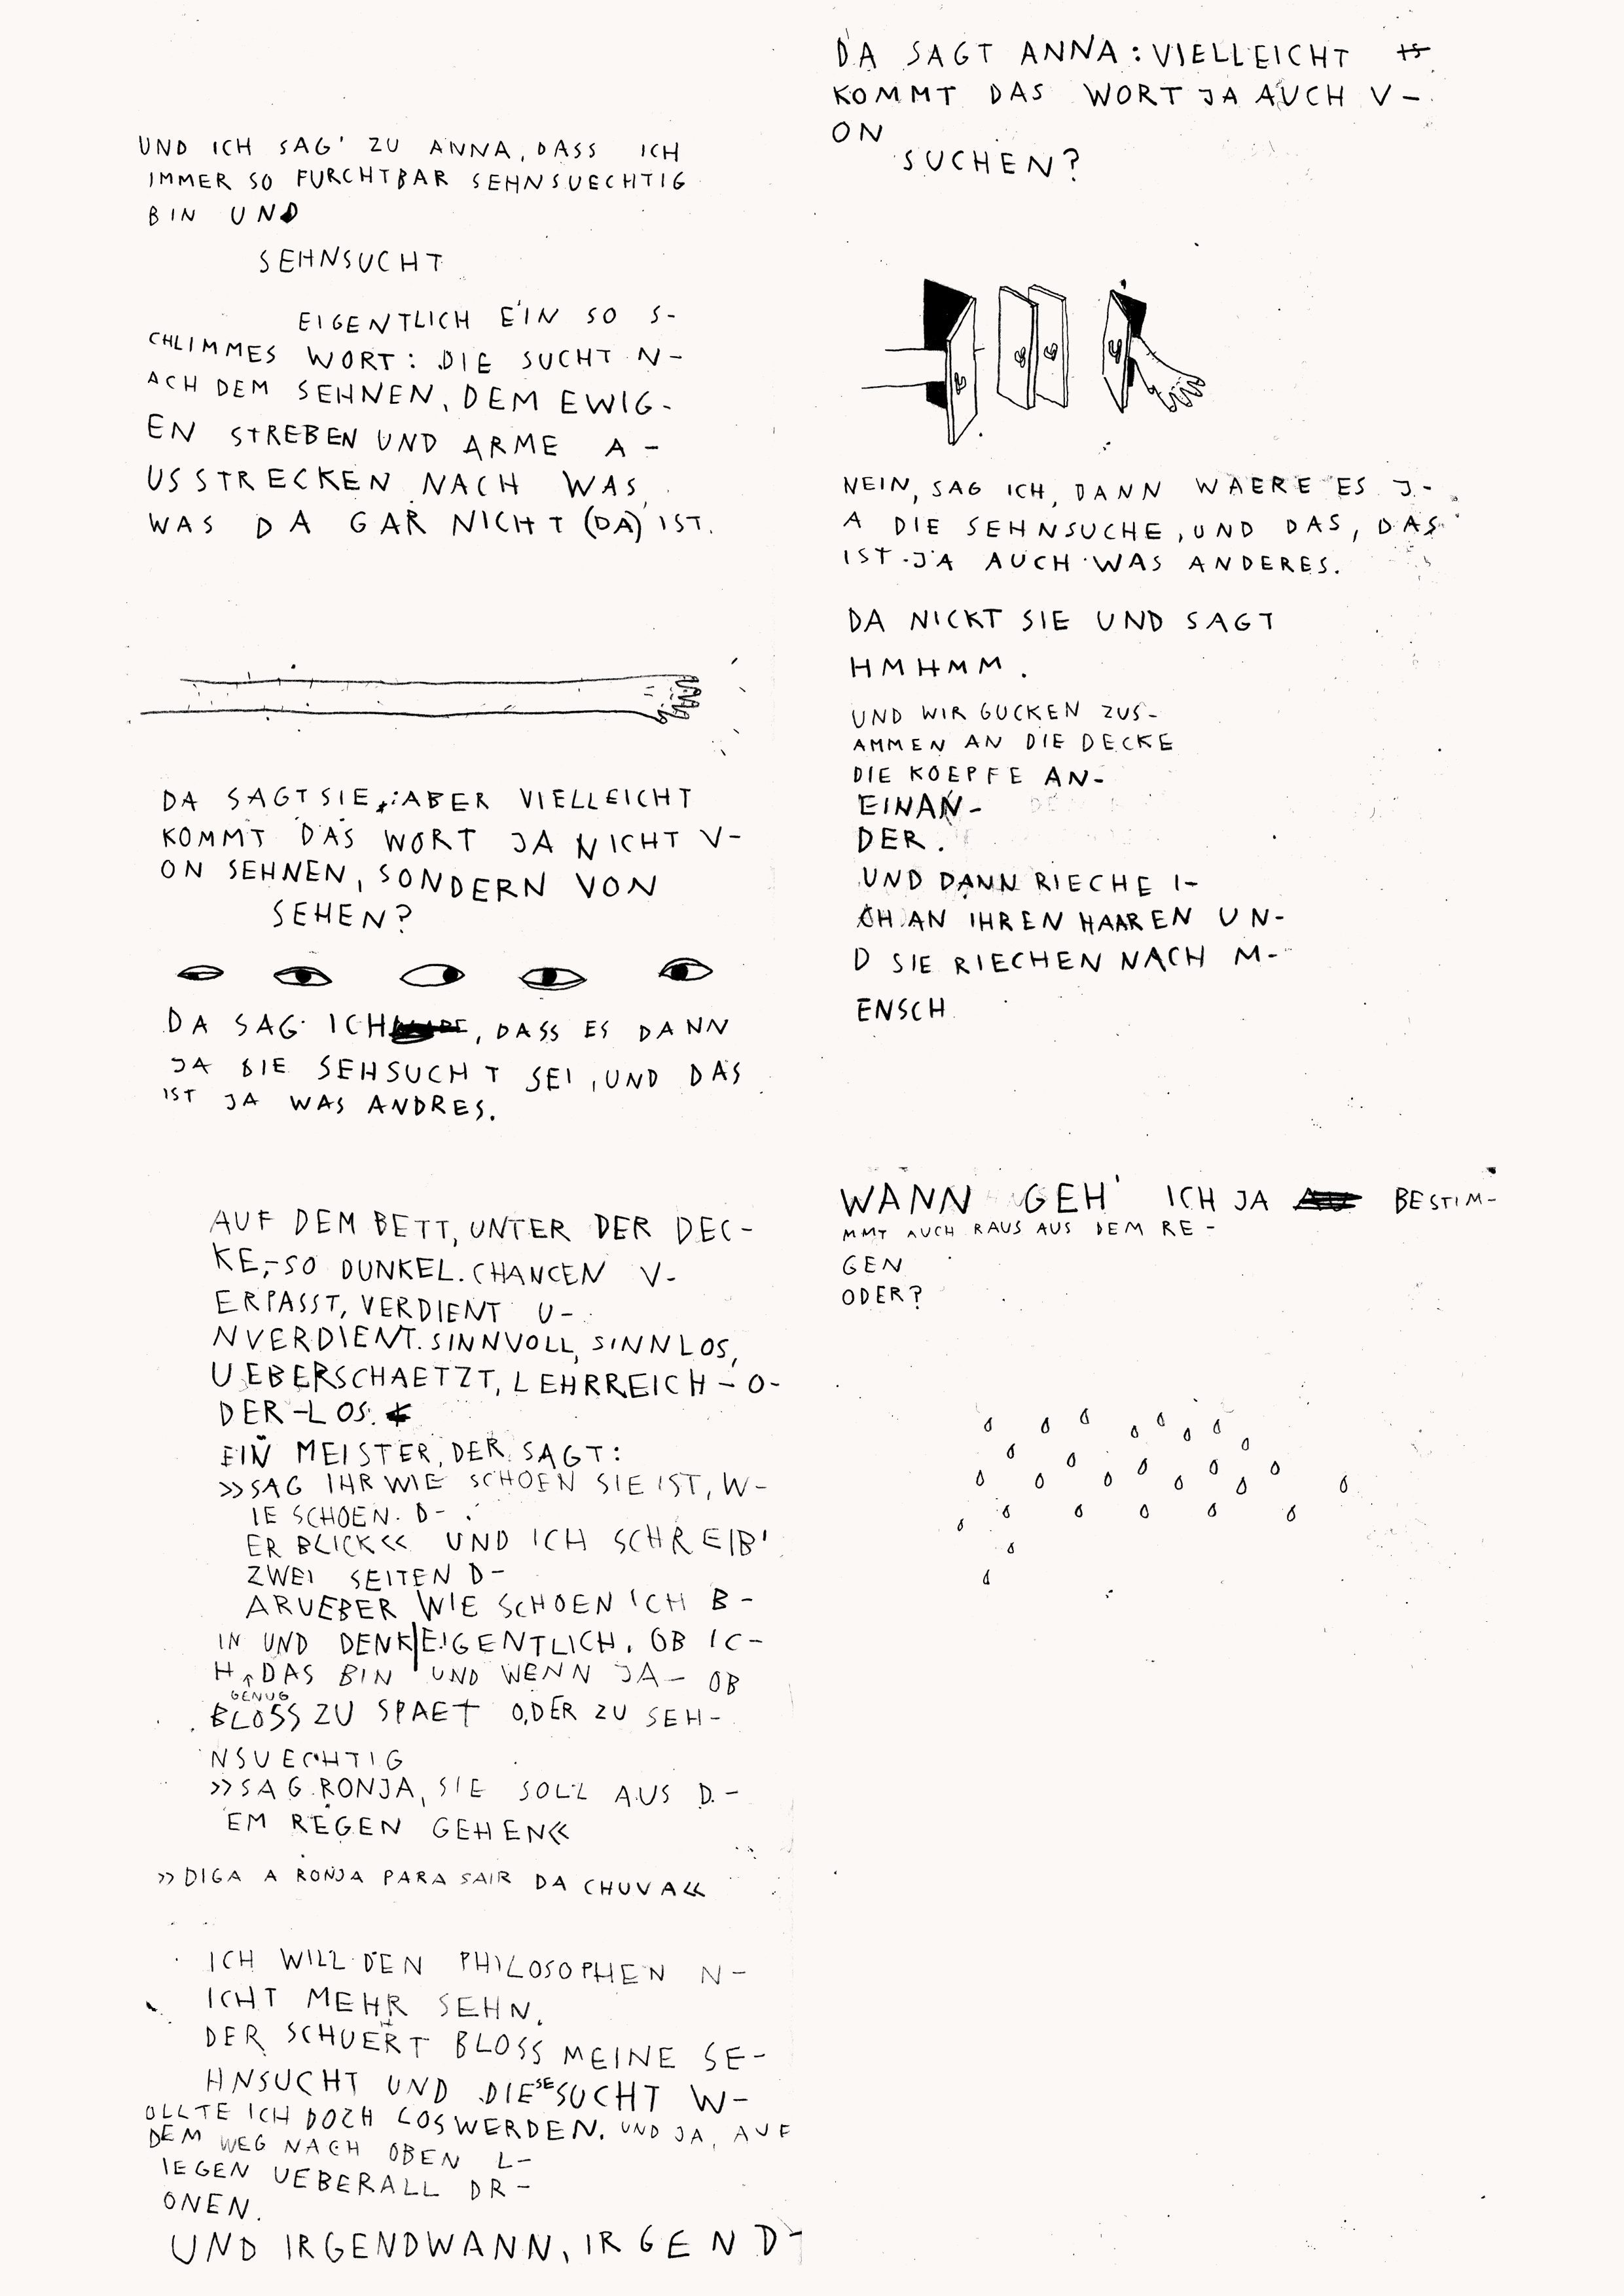 UND ICH SAG' ZU ANNA, DASS ICH
IMMER SO FURCHTBAR SEHNSUECHTIG
BIN UND
SEHNSUCHT
EIGENTLICH EIN SO S-
CHLIMMES WORT: DIE SUCHT N-
ACH DEM SEHNEN, DEM EWIG-
EN STREBEN UND ARME A-
USSTRECKEN NACH WAS,
WAS DA GAR NICHT (DA) IST.
DA SAGT SIE: ABER VIELLEICHT
KOMMT DAS WORT JA NICHT V-
ON SEHNEN, SONDERN VON
SEHEN?
DA SAG ICH, DASS ES DANN
JA DIE SEHSUCHT SEI, UND DAS
IST JA WAS ANDRES.
DA SAGT ANNA: VIELLEICHT
KOMMT DAS WORT JA AUCH V-
ON
SUCHEN?
NEIN, SAG ICH, DANN WAERE ES J-
A DIE SEHNSUCHE, UND DAS, DAS
IST JA AUCH WAS ANDERES.
DA NICKT SIE UND SAGT
HMHMM.
UND WIR GUCKEN ZUS-
AMMEN AN DIE DECKE
DIE KOEPFE AN-
EINAN-
DER.
UND DANN RIECHE I-
CH AN IHREN HAAREN UN-
D SIE RIECHEN NACH M-
ENSCH
AUF DEM BETT, UNTER DER DEC-
KE,-SO DUNKEL. CHANCEN V-
ERPASST, VERDIENT U-
NVERDIENT. SINNVOLL, SINNLOS,
UEBERSCHAETZT, LEHRREICH - O-
DER -LOS.
EIN MEISTER, DER SAGT:
»SAG IHR WIE SCHOEN SIE IST, W-
IE SCHOEN. D-
ER BLICK« UND ICH SCHREIB'
ZWEI SEITEN D-
ARUEBER WIE SCHOEN ICH B-
IN UND DENK|EIGENTLICH, OB IC-
H DAS BIN UND WENN JA - OB
GENUG
BLOSS ZU SPAET ODER ZU SEH-
NSUECHTIG
»SAG RONJA, SIE SOLL AUS D-
EM REGEN GEHEN«
»DIGA A RONJA PARA SAIR DA CHUVA«
ICH WILL DEN PHILOSOPHEN N-
ICHT MEHR SEHN.
DER SCHUERT BLOSS MEINE SE-
HNSUCHT UND DIESE SUCHT W-
OLLTE ICH DOCH LOSWERDEN. UND JA, AUF
DEM WEG NACH OBEN L-
IEGEN UEBERALL DR-
ONEN.
UND IRGENDWANN, IRGEND-
WANN GEH' ICH JA BESTIM-
MMT AUCH RAUS AUS DEM RE-
GEN
ODER?